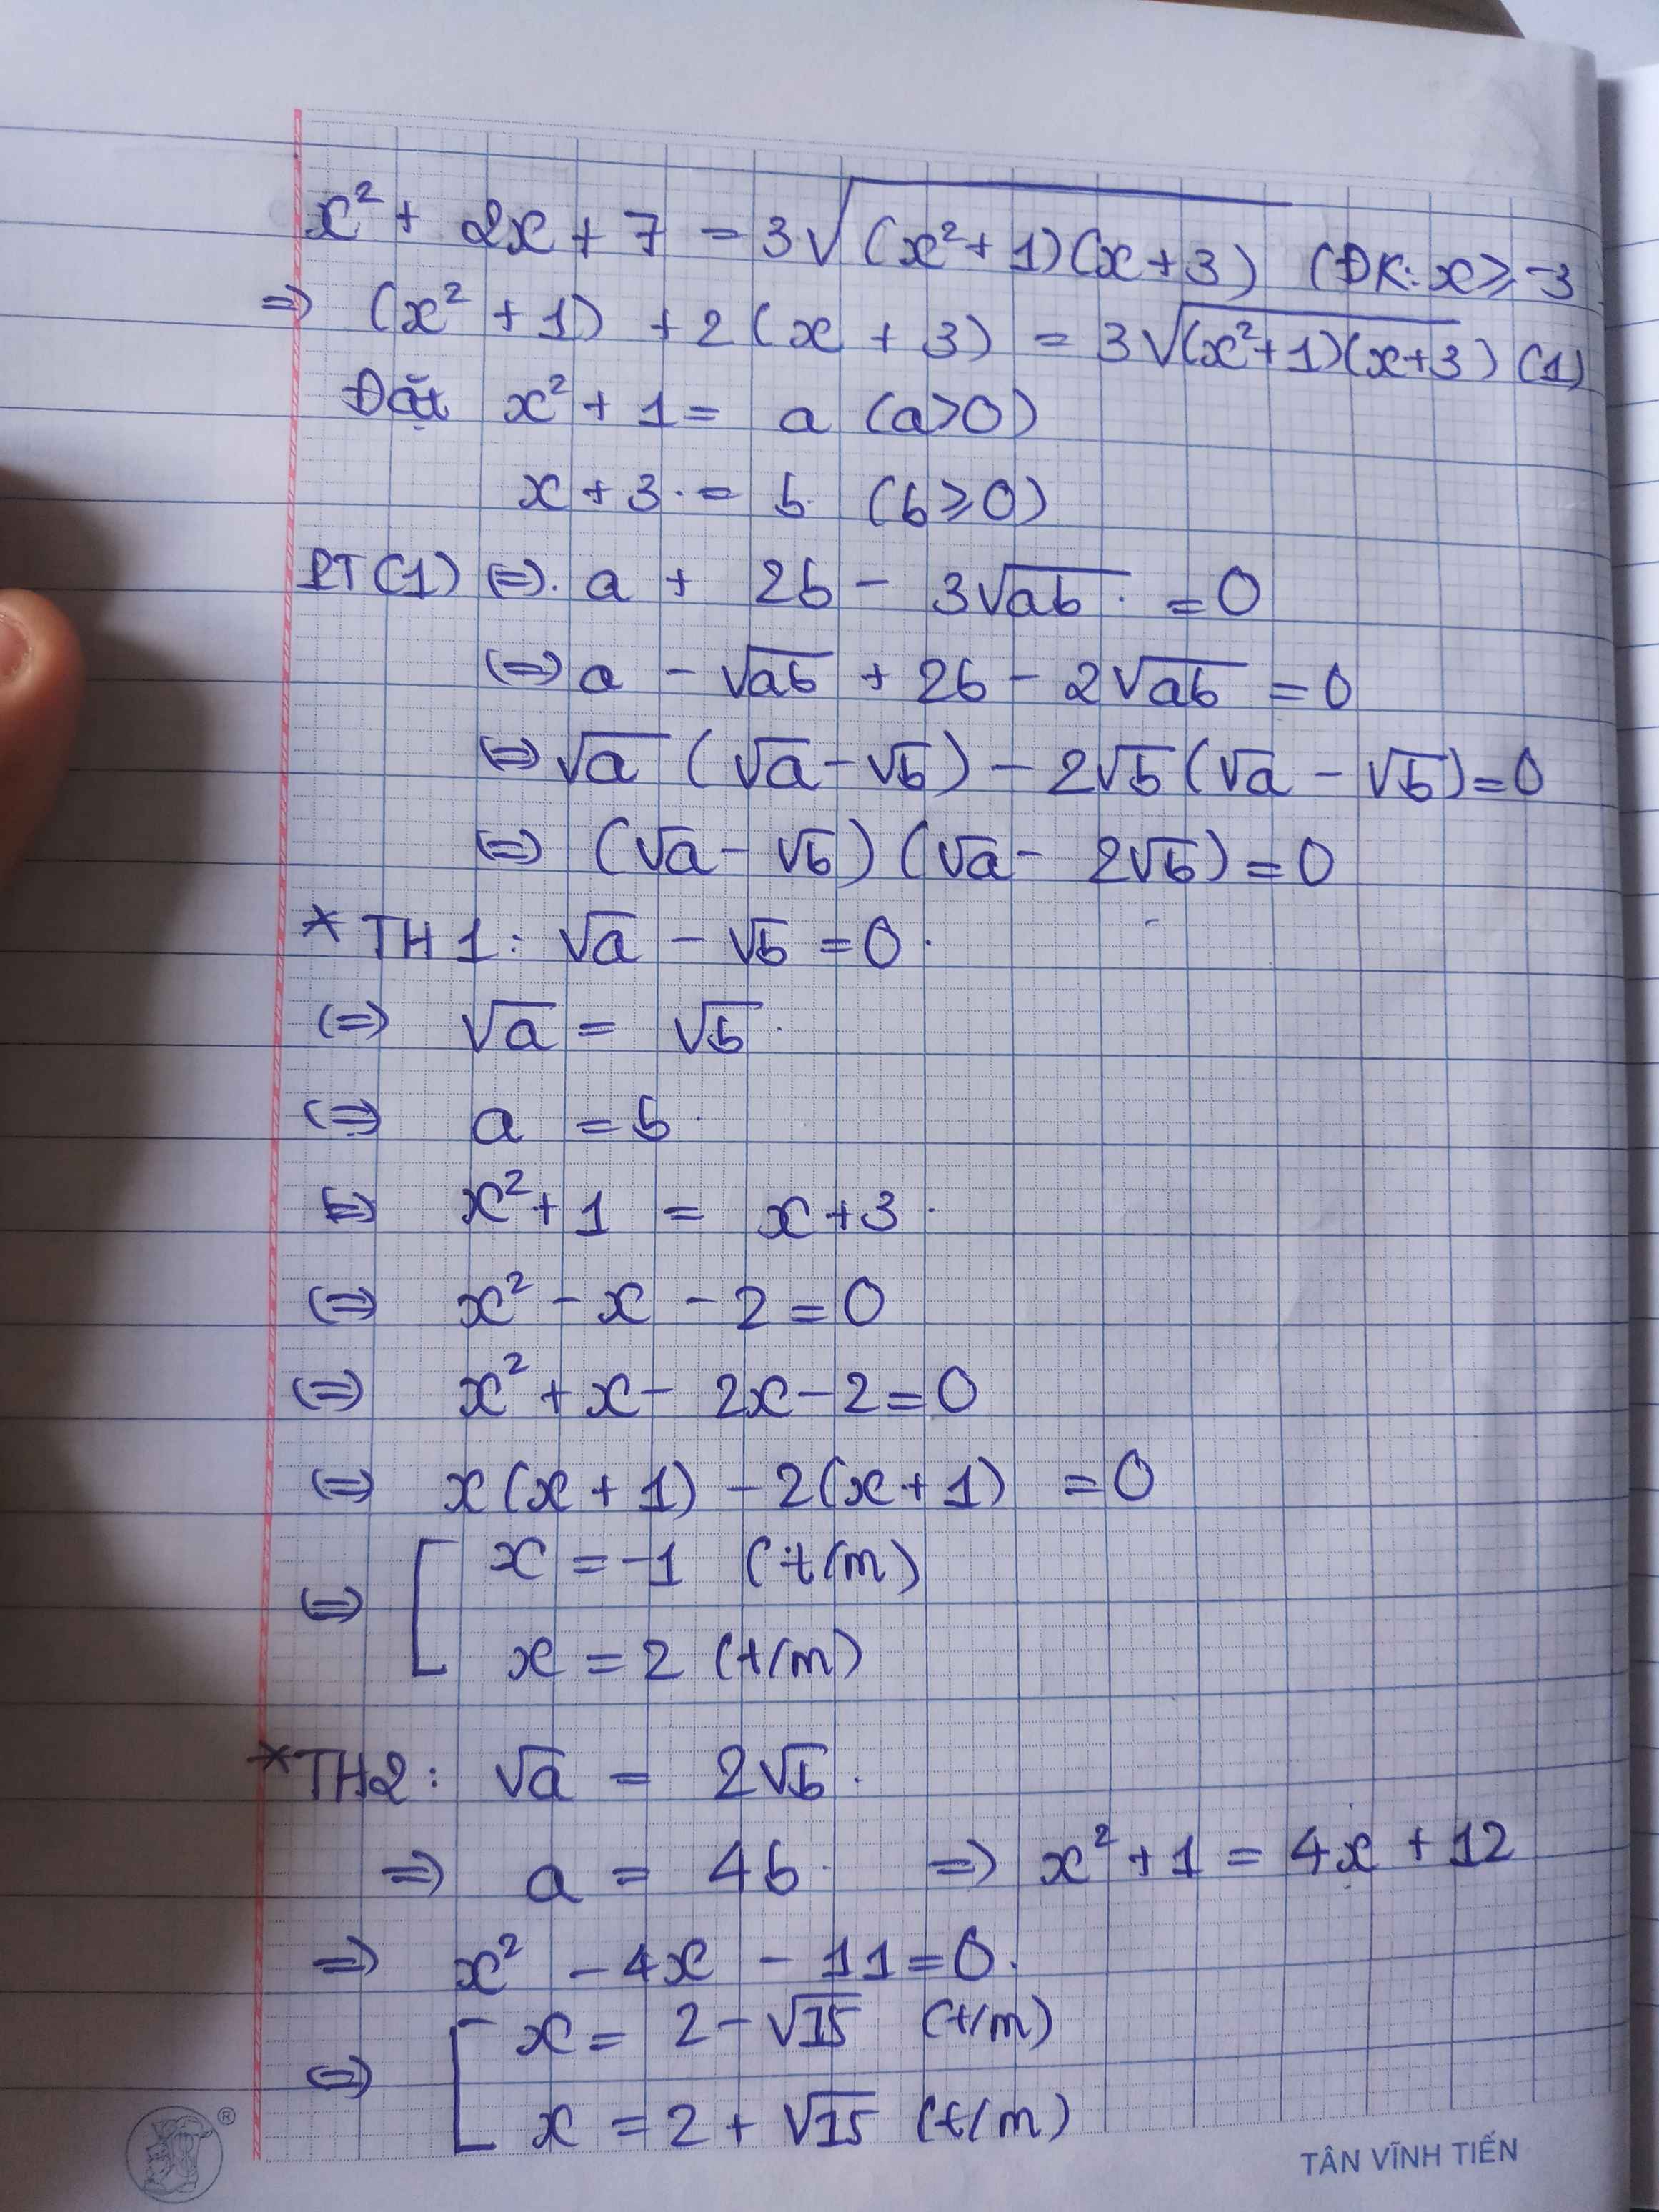 x² + 2x + 7 = 3√(x²+1)(x+3) (ĐK: x ⩾ -3
⇒ (x² + 1) + 2(x + 3) = 3√(x²+1)(x+3) (1)
Đặt x² + 1 = a (a>0)
x + 3 = b (b⩾0)
PT(1) ⇔ a + 2b - 3√ab = 0
⇔ a - √ab + 2b - 2√ab = 0
⇔ √a (√a - √b) - 2√b(√a - √b) = 0
⇔ (√a - √b)(√a - 2√b) = 0
* TH1: √a - √b = 0
⇔ √a = √b
⇔ a = b
⇔ x² + 1 = x + 3
⇔ x² - x - 2 = 0
⇔ x² + x - 2x - 2 = 0
⇔ x(x + 1) - 2(x + 1) = 0
⇔ [ x = -1 (t/m)
x = 2 (t/m)
* TH2: √a = 2√b
⇒ a = 4b ⇒ x² + 1 = 4x + 12
⇒ x² - 4x - 11 = 0
⇔ [ x = 2 - √15 (t/m)
x = 2 + √15 (t/m)
®
TÂN VĨNH TIẾN